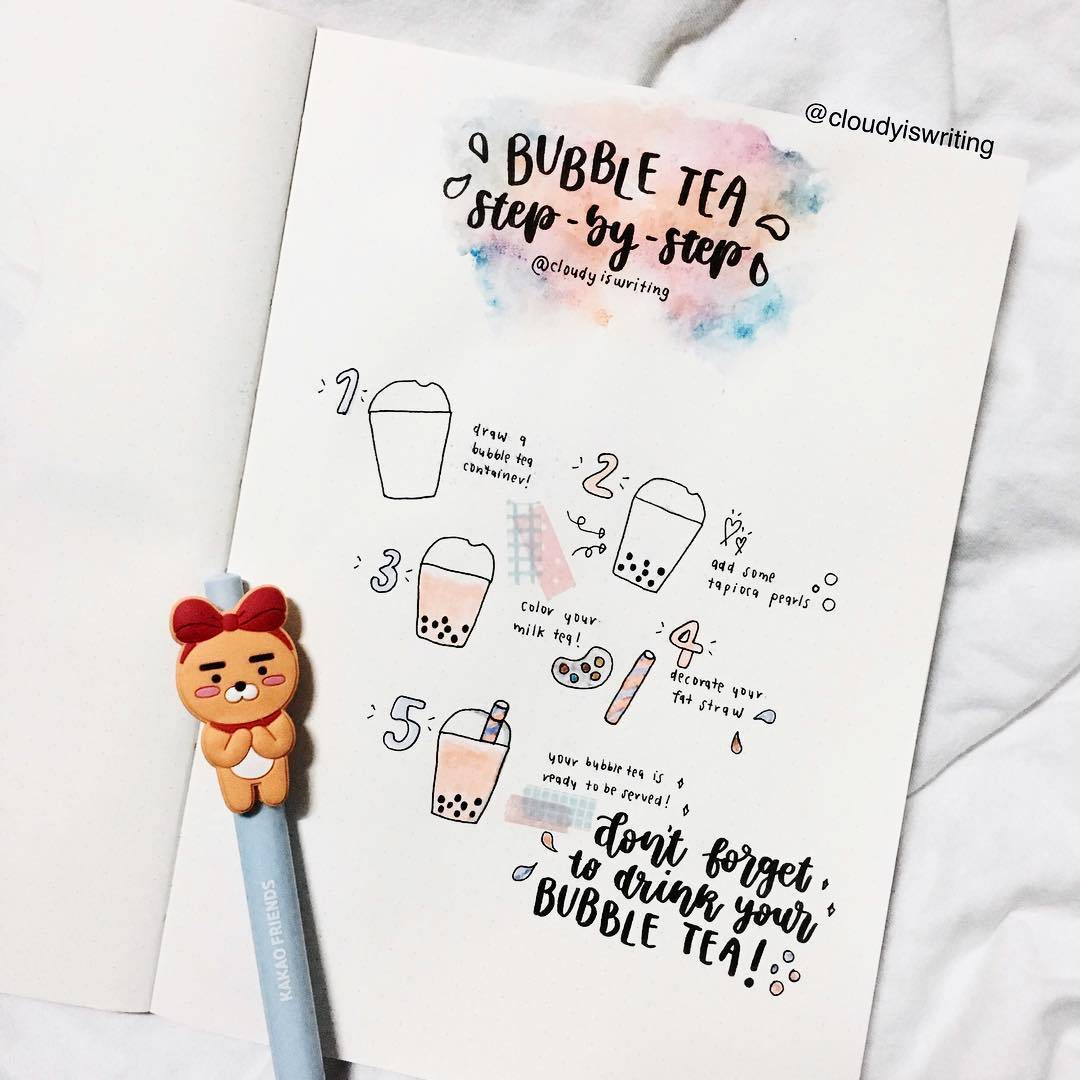 @cloudyiswriting
BUBBLE TEA
step-by-step
@cloudyiswriting
1
draw a
bubble tea
container!
2
add some
tapioca pearls
3
color your
milk tea!
4
decorate your
fat straw
5
your bubble tea is
ready to be served!
don't forget
to drink your
BUBBLE TEA!
KAKAO FRIENDS